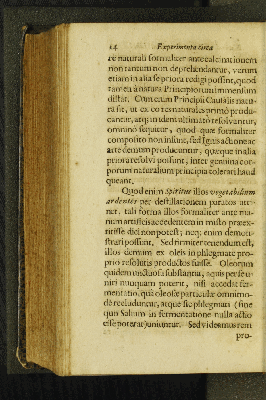 14 Experimenta circa
re naturali formaliter ante calcinationem
non tantum non deprehendantur, verum
etiam in alia se priora redigi possint, quod
tamen à natura Principiorum immensum
distat. Cum enim Principii Causalis natu-
ra sit, ut ex eo res naturales primò produ-
cantur, atq; in idem ultimatò resolvantur,
omninò sequitur, quod quæ formaliter
composito non insunt, sed Ignis actione ac
arte demum producuntur, quæque in alia
priora resolvi possunt, inter genuina cor-
porum naturalium principia tolerari haud
queant.
Quod enim Spiritus illos vegetabilium
ardentes per destillationem paratos atti-
net, tali forma illos formaliter ante ma-
num artificis accedentem in misto præex-
titisse dici non potest; neq; enim demon-
strari possunt. Sed firmiter tenendum est,
illos demum ex oleis in phlegmate pro-
prio resolutis productos fuisse. Oleorum
quidem unctuosa substantia, aquis perse u-
niri nunquam poterit, nisi accedat fer-
mentatio, quâ oleosæ particulæ omnimo-
dè recluduntur, atque sic phlegmati (sine
quo Salium in fermentatione nulla actio
esse poterat) uniuntur. Sed videamus rem
pro-